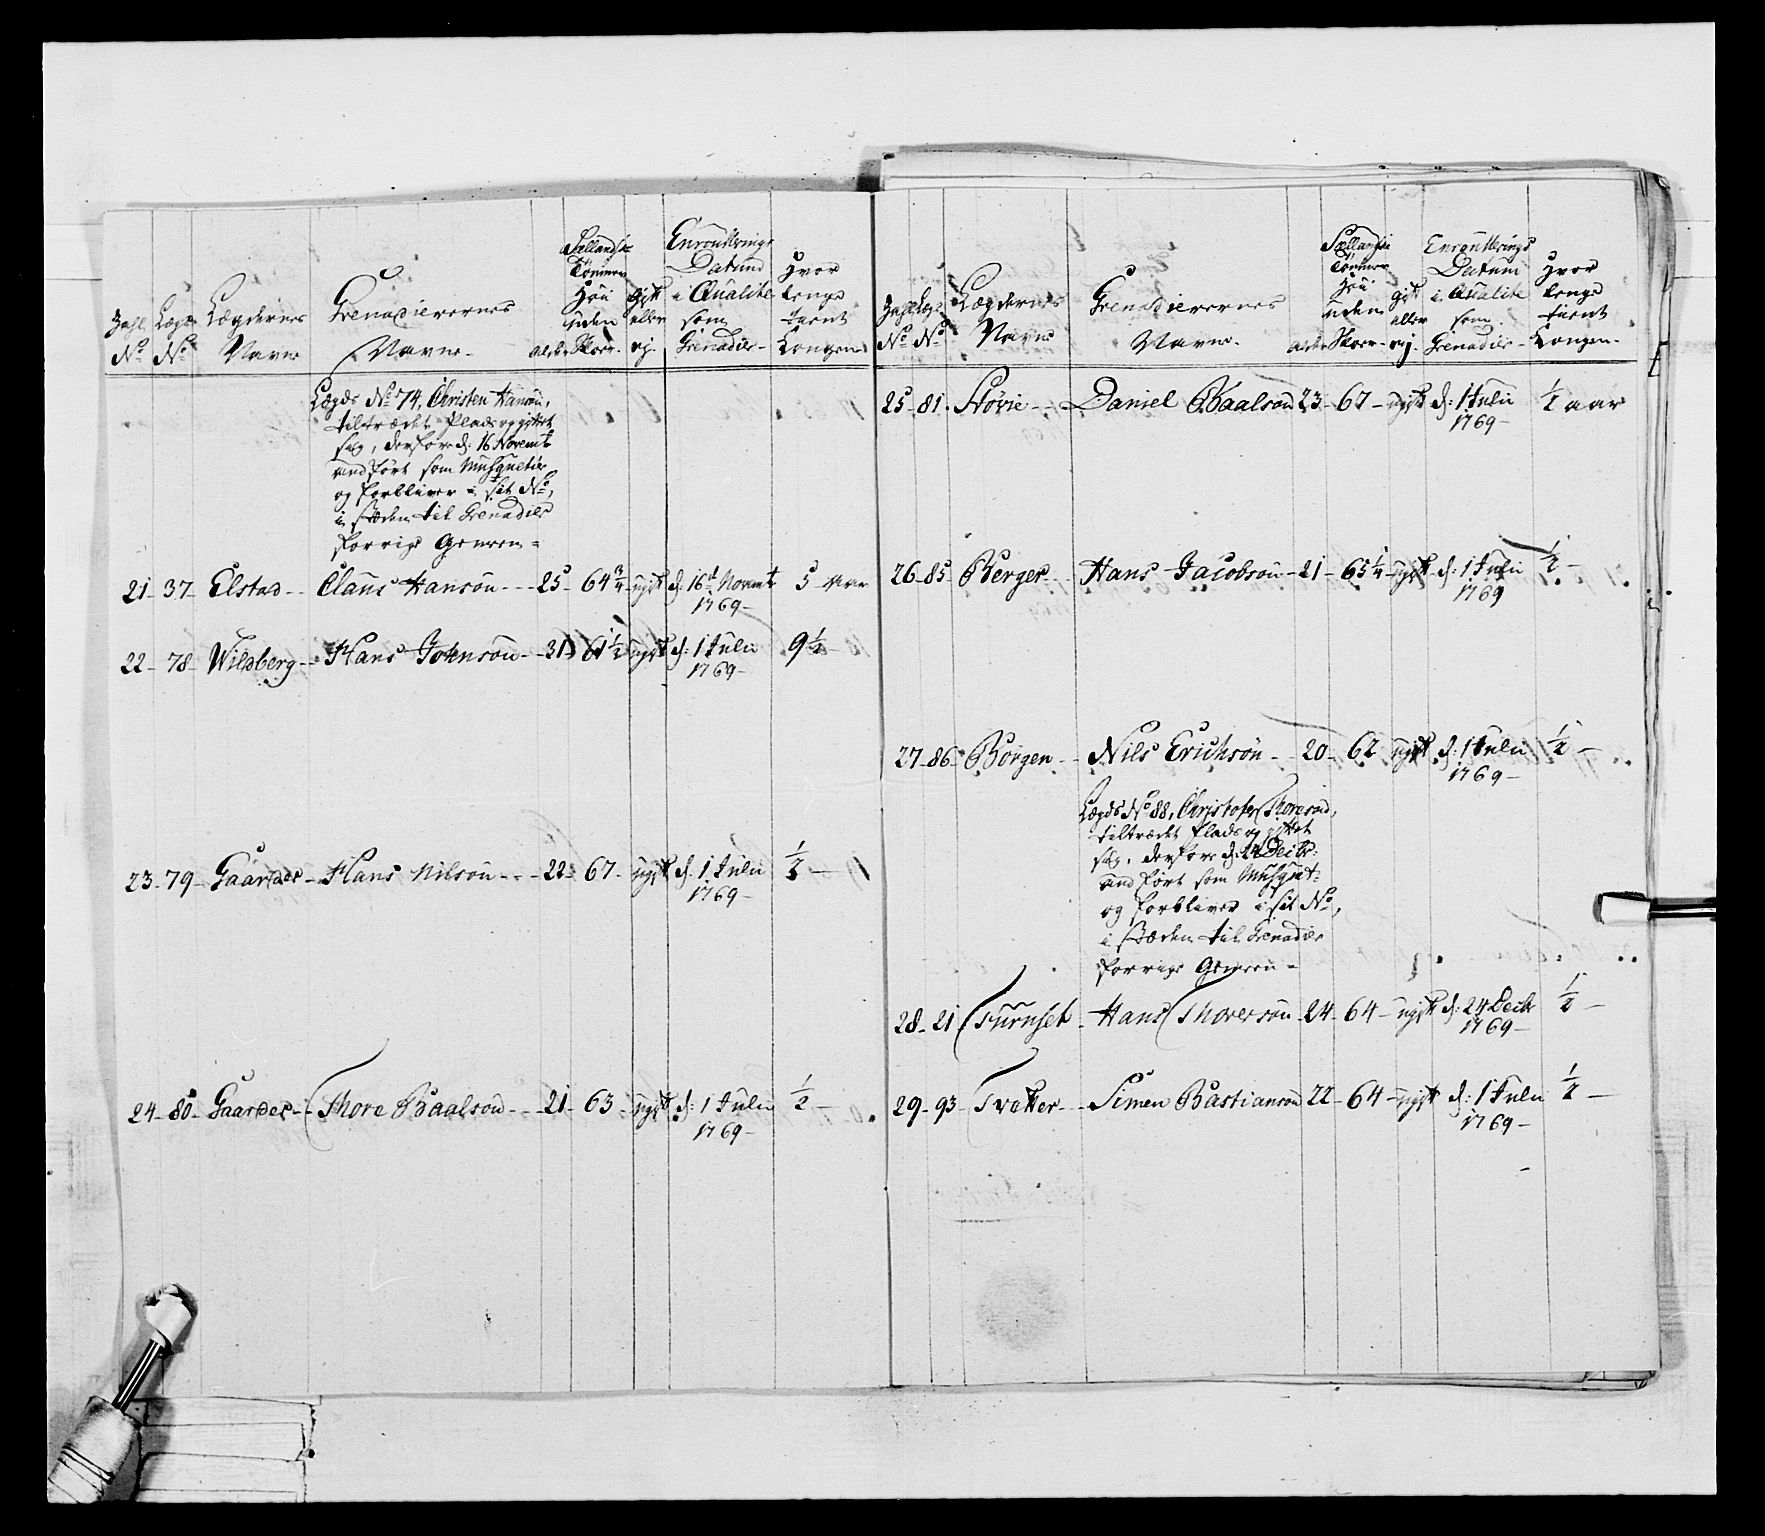 Zahl N° Lægds N° Lægdernes Navne Grenadierernes Navne. alder Sællandske Tommer Høi uden Skoer. Gift eller ej. Enroullerings Datum i Qualite som Grenadier Hvor lenge tient Kongen
Lægds N° 74, Christen Hansøn,
tiltrædet Plads og giftet
sig, derfore d: 16 Novembr
andført som Musquetier
og forbliver i sit N°,
i stæden til Grenadier
forrige Gemeen =
21 - 37 - Elstad - - Claus Hansøn - - - 25 - 64 3/4 - ugift d: 16de Novembr 5 - aar
1769 -
22 - 78 - Wildberg - - Hans Johnsøn - - 31 - 61 1/2 - ugift d: 1 Julii 9 1/2 -
1769 -
23 - 79 - Gaarder - Hans Nilsøn - - - 22 - 67 - ugift d: 1 Julii 1/2 -
1769 -
24 - 80 - Gaarder - - Thore Paalsøn - - - 21 - 63 - ugift d: 1 Julii 1/2 -
1769 -
Zahl N° Lægds N° Lægdernes Navne Grenadierernes Navne. alder Sællandske Tommer Høi uden Skoer. Gift eller ej. Enroullerings Datum i Qualite som Grenadier - Hvor lenge tient Kongen.
25 - 81 - Høvie - - Daniel Paalsøn 23 - 67 - ugift d: 1 Julii 1/2 aar
1769 -
26 - 85 - Berger - - Hans Jacobsøn - 21 - 65 1/4 - ugift d: 1 Julii 1/2 -
1769
27 - 86 - Børgen - - Nils Erichsøn - - 20 - 62 - ugift d: 1 Julii 1/2 -
1769 -
Lægds N° 88, Christofer Thoresøn,
tiltrædet Plads og giftet
sig, derfore d: 24 Decbr:
andført som Musquet:
og forbliver i sit N°,
i stæden til Grenadier
forrige Gemeen =
28 - 21 Furuset - Hans Thoresøn - 24 - 64 - ugift d: 24 Decbr 1/2 -
1769 -
29 - 93 - Tveter - - Simen Bastiansøn 22 - 64 - ugift d: 1 Julii 1/2 -
1769 -